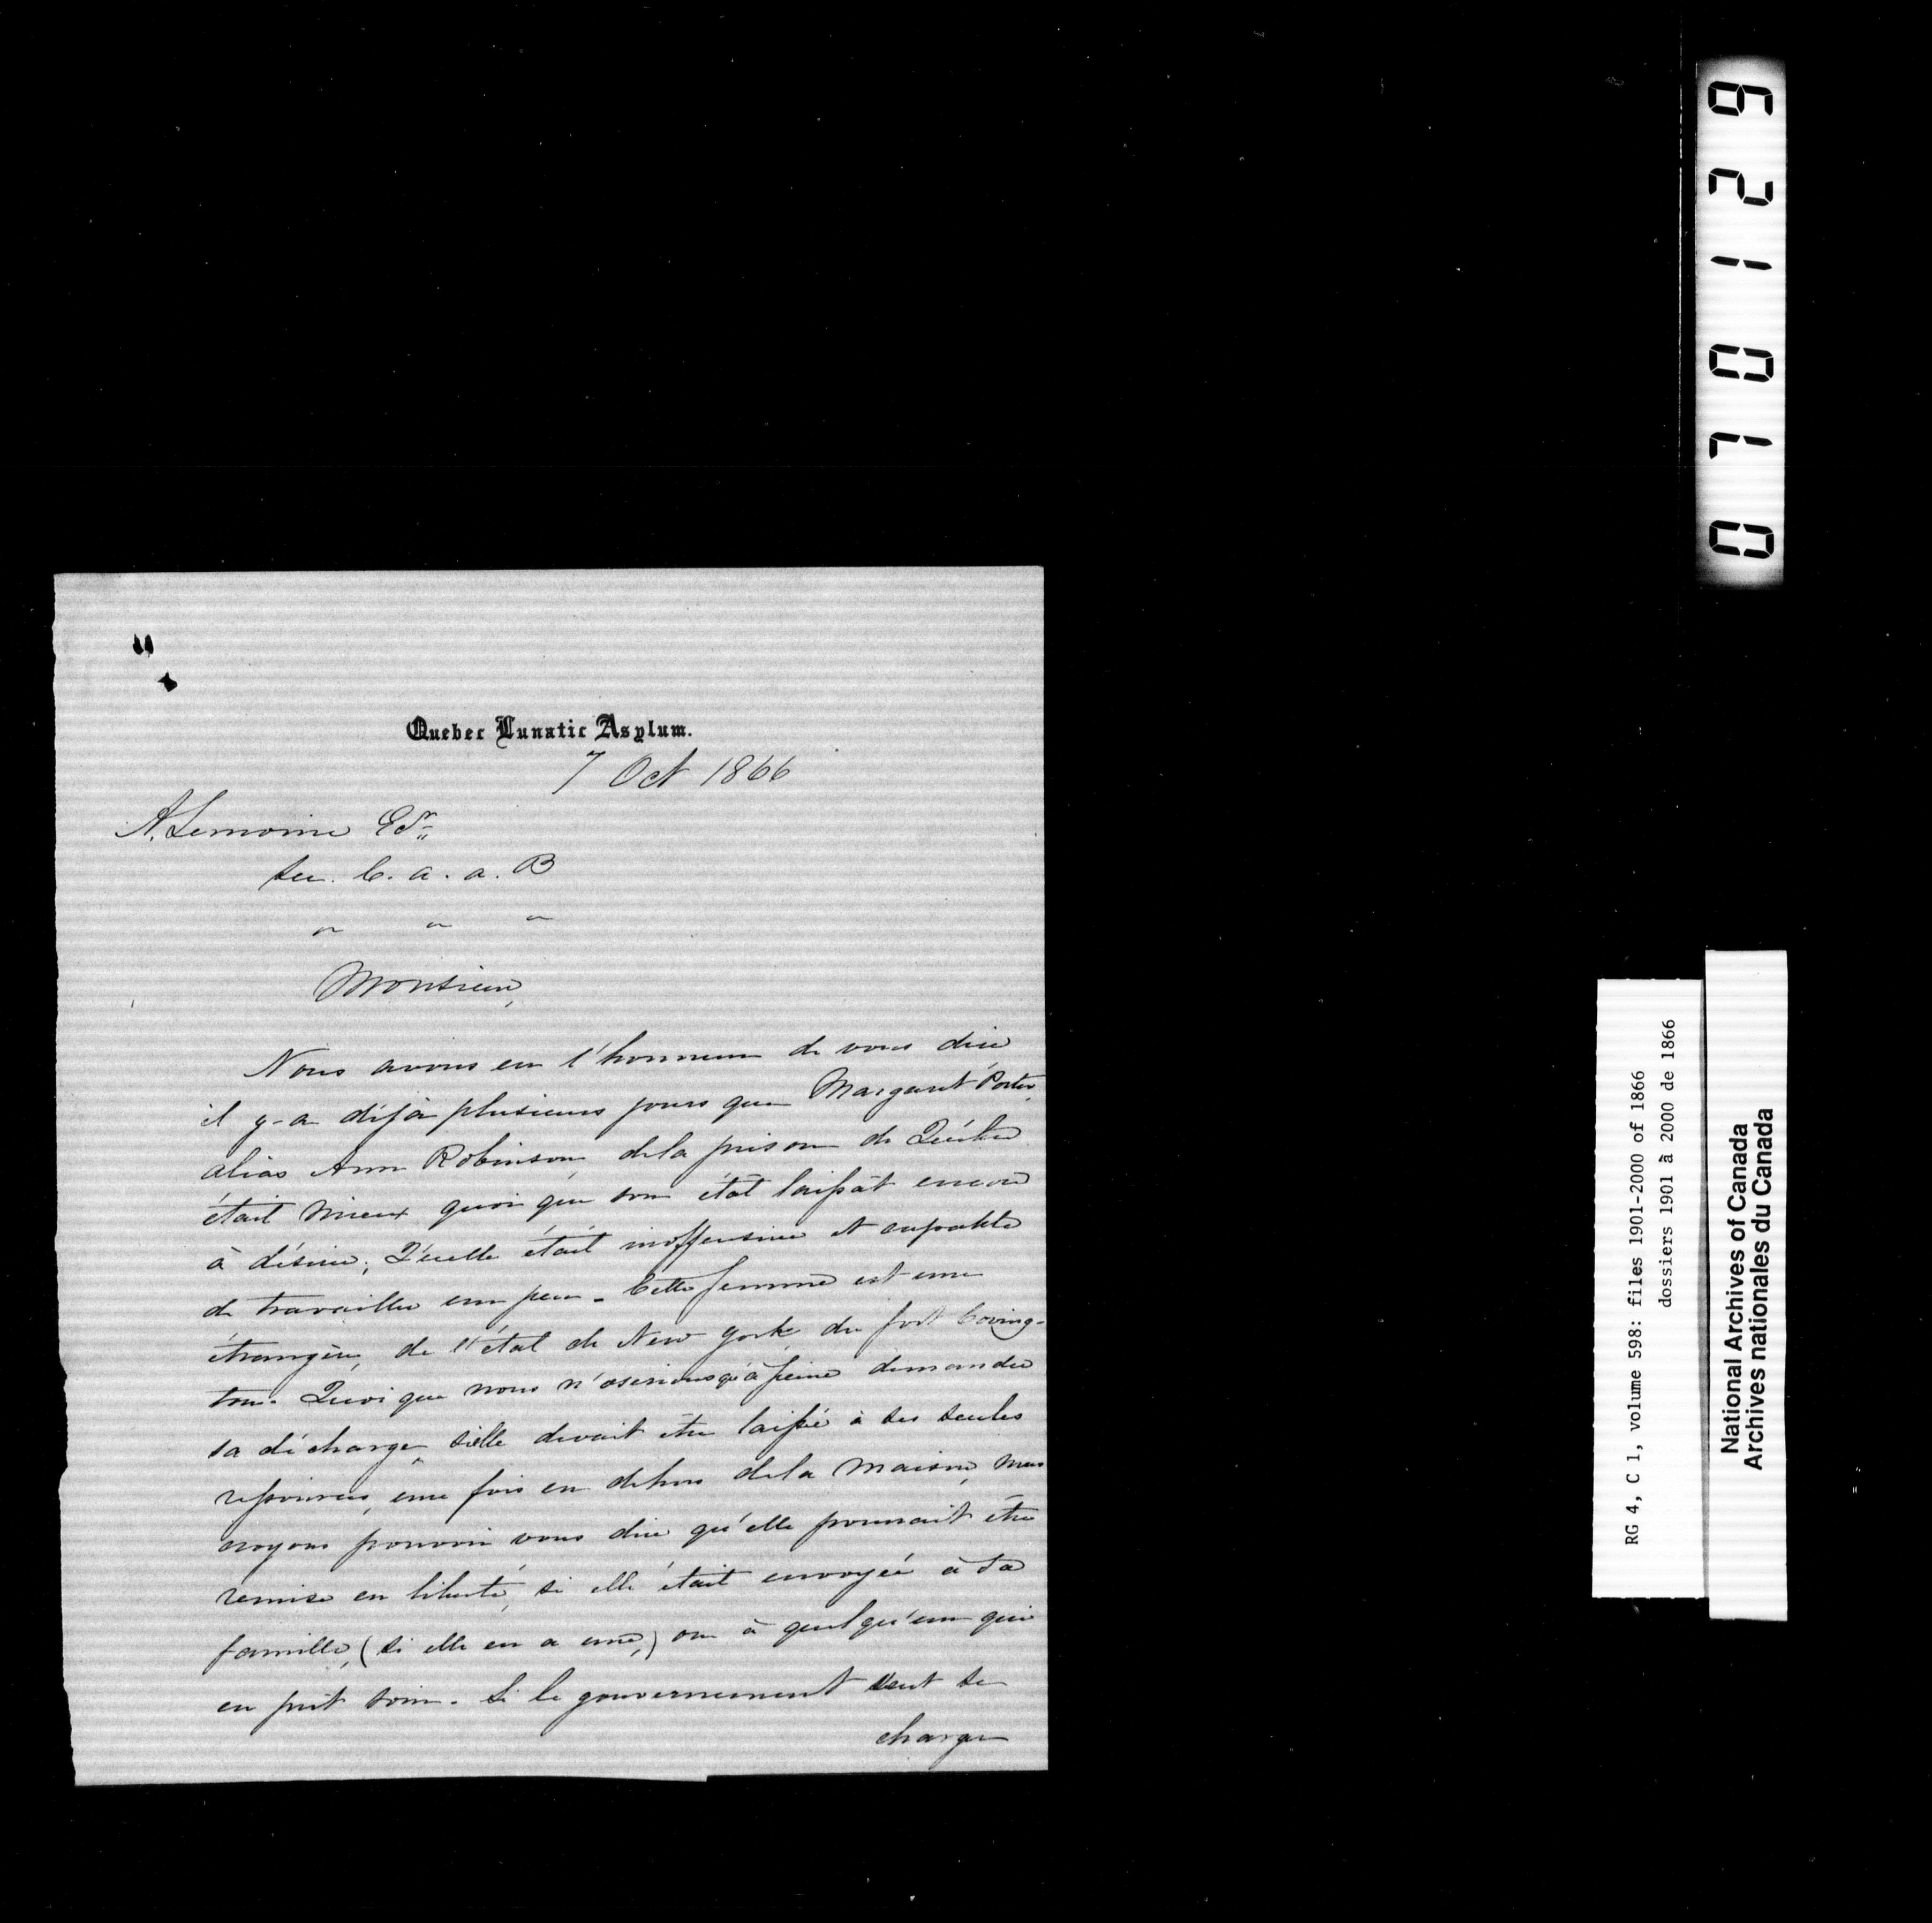 Quebec Lunatic Asylum.
7 Oct 1866
A. Lemoine Esr.
Sec. C. a. a. B
" " "
Monsieur,
Nous avons eu l'honneur de vous dire
il y-a déjà plusieurs jours que Margaret Porter,
alias Ann Robinson, de la prison de Québec
était mieux quoi que son état laissât encore
à désirer; Qu'elle était inoffensive et capable
de travailler un peu. Cette femme est une
étrangère, de l'état de New York, du fort Coving-
ton. Quoi que nous n'oserions qu'à peine demander
sa décharge, si elle devait être laissée à ses seules
ressources, une fois en dehors de la maison, nous
croyons pouvoir vous dire qu'elle pourrait être
remise en liberté, si elle était envoyée à sa
famille, (si elle en a une,) ou à quelqu'un qui
en prit soin. Si le gouvernement veut se
charger
070129
RG 4, C 1, volume 598: files 1901-2000 of 1866
dossiers 1901 à 2000 de 1866
National Archives of Canada
Archives nationales du Canada